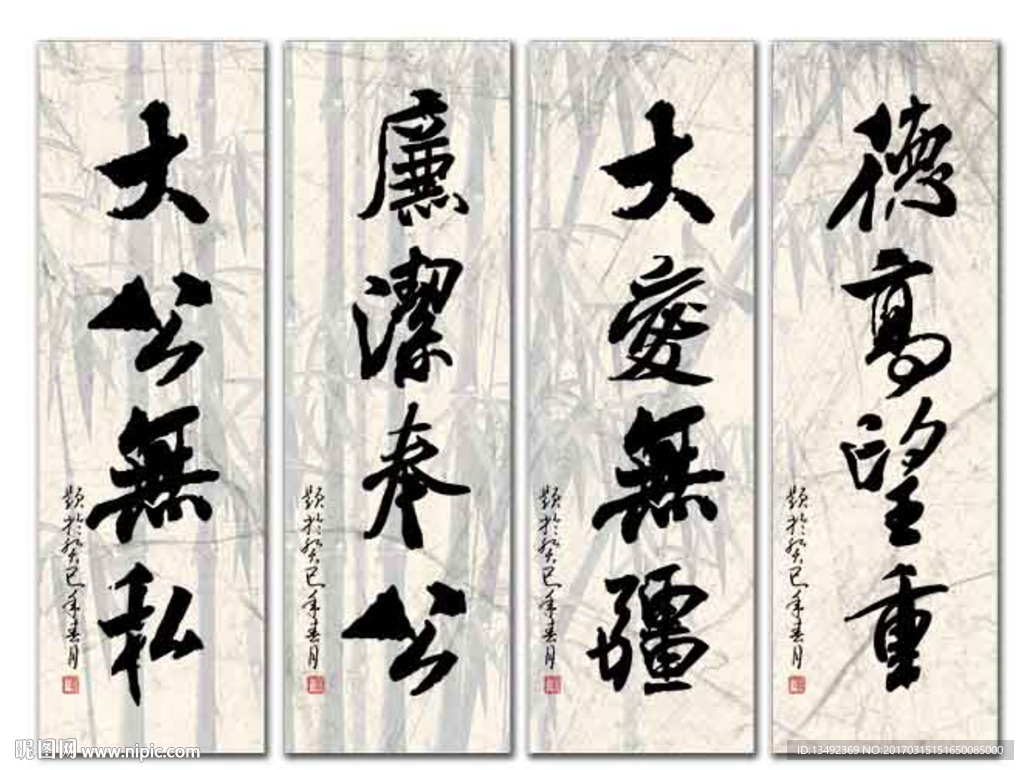 德高望重
題於癸巳年春月
大愛無疆
題於癸巳年春月
廉潔奉公
題於癸巳年春月
大公無私
題於癸巳年春月
昵图网 www.nipic.com
ID:13492369 NO:20170315151650085000